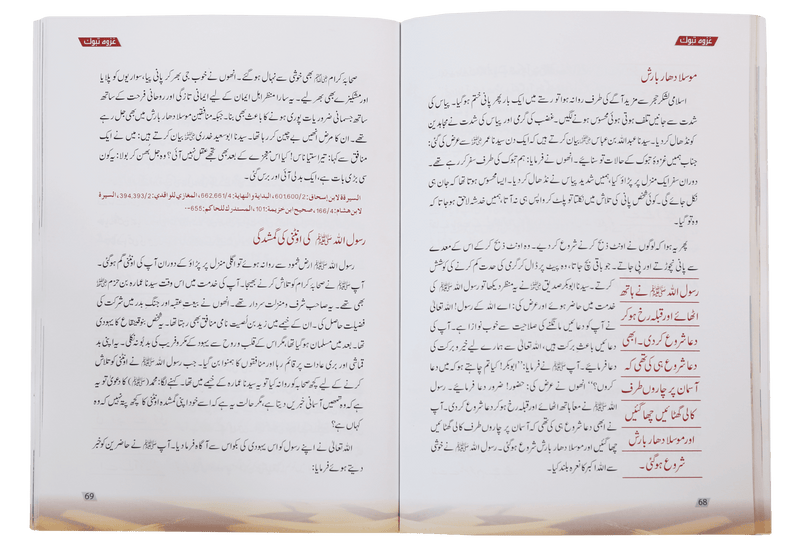 غزوہ تبوک
موسلا دھار بارش
اسلامی لشکر حجر سے مزید آگے کی طرف روانہ ہوا تو رستے میں ایک بار پھر پانی ختم ہو گیا۔ پیاس کی
شدت سے جانیں تلف ہوتی ہوئی محسوس ہونے لگیں۔ غضب کی گرمی اور پیاس کی شدت نے مجاہدین
کو نڈھال کر دیا۔ سیدنا عبداللہ بن عباس بیان کرتے ہیں کہ ایک دن سیدنا عمر سے عرض کی گئی:
جناب ہمیں غزوۂ تبوک کے حالات تو سنائیے۔ انھوں نے فرمایا: ہم تبوک کی طرف سفر کر رہے تھے۔
دوران سفر ایک منزل پر پڑاؤ کیا، ہمیں شدید پیاس نے نڈھال کر دیا۔ ایسا محسوس ہوتا تھا کہ جان ہی
نکل جائے گی۔ کوئی شخص پانی کی تلاش میں نکلتا تو پلٹ کر واپس ہی نہ آتا، ہمیں خدشہ لاحق ہو جاتا کہ
وہ تو گیا۔
پھر یہ ہوا کہ لوگوں نے اونٹ ذبح کرنے شروع کر دیے۔ وہ اونٹ ذبح کر کے اس کے معدے
سے پانی نچوڑتے اور پی جاتے۔ جو باقی بچ جاتا، وہ پیٹ پر ڈال کر گرمی کی حدت کم کرنے کی کوشش
کرتے۔ سیدنا ابوبکر صدیق نے یہ منظر دیکھا تو رسول اللہ ﷺ کی
خدمت میں حاضر ہوئے اور عرض کی: اے اللہ کے رسول! اللہ تعالیٰ
نے آپ کو دعائیں مانگنے کی صلاحیت سے خوب نوازا ہے۔ آپ کی
دعائیں باعث برکت ہیں، اللہ تعالیٰ سے ہمارے لیے خیر و برکت کی
دعا فرمائیے۔ آپ ﷺ نے فرمایا: ”ابوبکر! کیا تم چاہتے ہو کہ میں دعا
کروں؟“ انھوں نے عرض کی: حضور! ضرور دعا فرمائیے۔ رسول
اللہ ﷺ نے معاً ہاتھ اٹھائے اور قبلہ رخ ہو کر دعا شروع کر دی۔ آپ
نے ابھی دعا شروع ہی کی تھی کہ آسمان پر چاروں طرف کالی گھٹائیں
چھا گئیں اور موسلا دھار بارش شروع ہو گئی۔ رسول اللہ ﷺ نے خوشی
سے اللہ اکبر کا نعرہ بلند کیا۔
رسول اللہ ﷺ نے ہاتھ
اٹھائے اور قبلہ رخ ہو کر
دعا شروع کر دی۔ ابھی
دعا شروع ہی کی تھی کہ
آسمان پر چاروں طرف
کالی گھٹائیں چھا گئیں
اور موسلا دھار بارش
شروع ہو گئی۔
68
غزوہ تبوک
صحابہ کرام بھی خوشی سے نہال ہو گئے۔ انھوں نے خوب جی بھر کر پانی پیا، سواریوں کو پلایا
اور مشکیزے بھی بھر لیے۔ یہ سارا منظر اہل ایمان کے لیے ایمانی تازگی اور روحانی فرحت کے ساتھ
ساتھ جسمانی ضروریات پوری ہونے کا باعث بھی بنا۔ جبکہ منافقین موسلا دھار بارش میں بھی جل رہے
تھے۔ ان کا مرض انھیں بے چین کر رہا تھا۔ سیدنا ابوسعید خدری بیان کرتے ہیں: میں نے ایک
منافق سے کہا: تیرا ستیاناس! کیا اس معجزے کے بعد بھی تجھے عقل نہیں آئی؟ وہ جل بھن کر بولا: یہ کون
سی بڑی بات ہے، ایک بدلی آئی اور برس گئی۔
السيرة لابن إسحاق: 601,600/2، البداية والنهاية: 662,661/4، المغازي للواقدي: 394,393/2، السيرة
لابن هشام: 166/4، صحيح ابن خزيمة: 101، المستدرك للحاكم: 655
رسول اللہ ﷺ کی اونٹنی کی گمشدگی
رسول اللہ ﷺ ارض ثمود سے روانہ ہوئے تو اگلی منزل پر پڑاؤ کے دوران آپ کی اونٹنی گم ہو گئی۔
آپ ﷺ نے صحابہ کرام کو تلاش کرنے بھیجا۔ آپ کی خدمت میں اس وقت سیدنا عمارہ بن حزم
بھی تھے۔ یہ صاحب شرف و منزلت سردار تھے۔ انھوں نے بیعت عقبہ اور جنگ بدر میں شرکت کی
فضیلت حاصل کی۔ ان کے خیمے میں زید بن لصیت نامی منافق بھی رہتا تھا۔ یہ شخص بنو قینقاع کا یہودی
تھا۔ بعد میں مسلمان ہو گیا تھا، مگر اس کے قلب و روح سے یہود کے مکر و فریب کی بدبو نہ نکلی۔ یہ اپنی بد
قماشی اور بری عادات پر قائم رہا اور منافقوں کا ہمنوا بن گیا۔ جب رسول اللہ ﷺ نے اونٹنی کو تلاش
کرنے کے لیے کچھ صحابہ کو روانہ کیا تو یہ سیدنا عمارہ کے خیمے میں تھا۔ کہنے لگا: محمد (ﷺ) کا دعویٰ تو یہ
ہے کہ وہ تمھیں آسمانی خبریں دیتا ہے، مگر حالت یہ ہے کہ اسے خود اپنی گمشدہ اونٹنی کا کچھ پتہ نہیں کہ وہ
کہاں ہے؟
اللہ تعالیٰ نے اپنے رسول کو اس یہودی کی بکواس سے آگاہ فرما دیا۔ آپ ﷺ نے حاضرین کو خبر
دیتے ہوئے فرمایا:
69